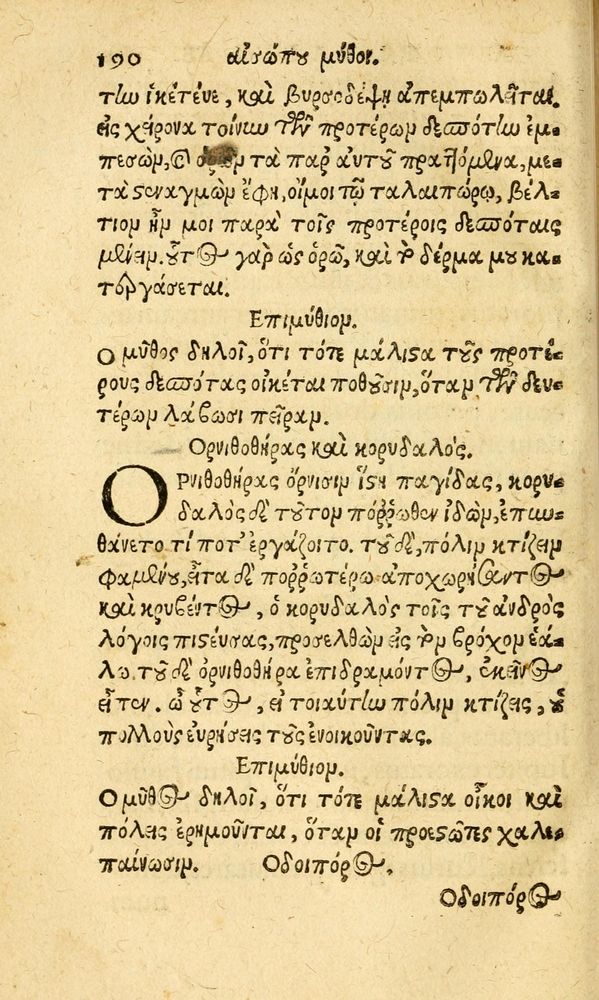 190 αἰσώπου μῦθοι.
τὴν ἱκέτευε, καὶ βυρσοδέψῃ ἀπεμπωλεῖται.
εἰς χείρονα τοίνυν τῶν προτέρων δεσπότην ἐμ-
πεσὼν, καὶ ὁρῶν τὰ παρ' αὐτοῦ πραττόμενα, με-
τὰ στεναγμῶν ἔφη, οἴμοι τῷ ταλαιπώρῳ, βέλ-
τιον ἦν μοι παρὰ τοῖς προτέροις δεσπόταις
μένειν. οὗτος γὰρ ὡς ὁρῶ, καὶ τὸ δέρμα μου κα-
τεργάσεται.
Ἐπιμύθιον.
Ὁ μῦθος δηλοῖ, ὅτι τότε μάλιστα τοὺς προτέ-
ρους δεσπότας οἰκέται ποθοῦσιν, ὅταν τῶν δευ-
τέρων λάβωσι πεῖραν.
Ὀρνιθοθήρας καὶ κορυδαλός.
ΟΡνιθοθήρας ὄρνισιν ἵστη παγίδας, κορυ-
δαλὸς δὲ τοῦτον πόῤῥωθεν ἰδὼν, ἐπυν-
θάνετο τί ποτ' ἐργάζοιτο. τοῦ δὲ, πόλιν κτίζειν
φαμένου, εἶτα δὲ ποῤῥωτέρω ἀποχωρήσαντος
καὶ κρυβέντος, ὁ κορυδαλὸς τοῖς τοῦ ἀνδρὸς
λόγοις πιστεύσας, προσελθὼν εἰς τὸν βρόχον ἑά-
λω τοῦ δὲ ὀρνιθοθήρα ἐπιδραμόντος, ἐκεῖνος
εἶπεν. ὦ οὗτος, εἰ τοιαύτην πόλιν κτίζεις, οὐ
πολλοὺς εὑρήσεις τοὺς ἐνοικοῦντας.
Ἐπιμύθιον.
Ὁ μῦθος δηλοῖ, ὅτι τότε μάλιστα οἶκοι καὶ
πόλεις ἐρημοῦνται, ὅταν οἱ προεστῶτες χαλε-
παίνωσιν. Ὁδοιπόρος.
Ὁδοιπόρος